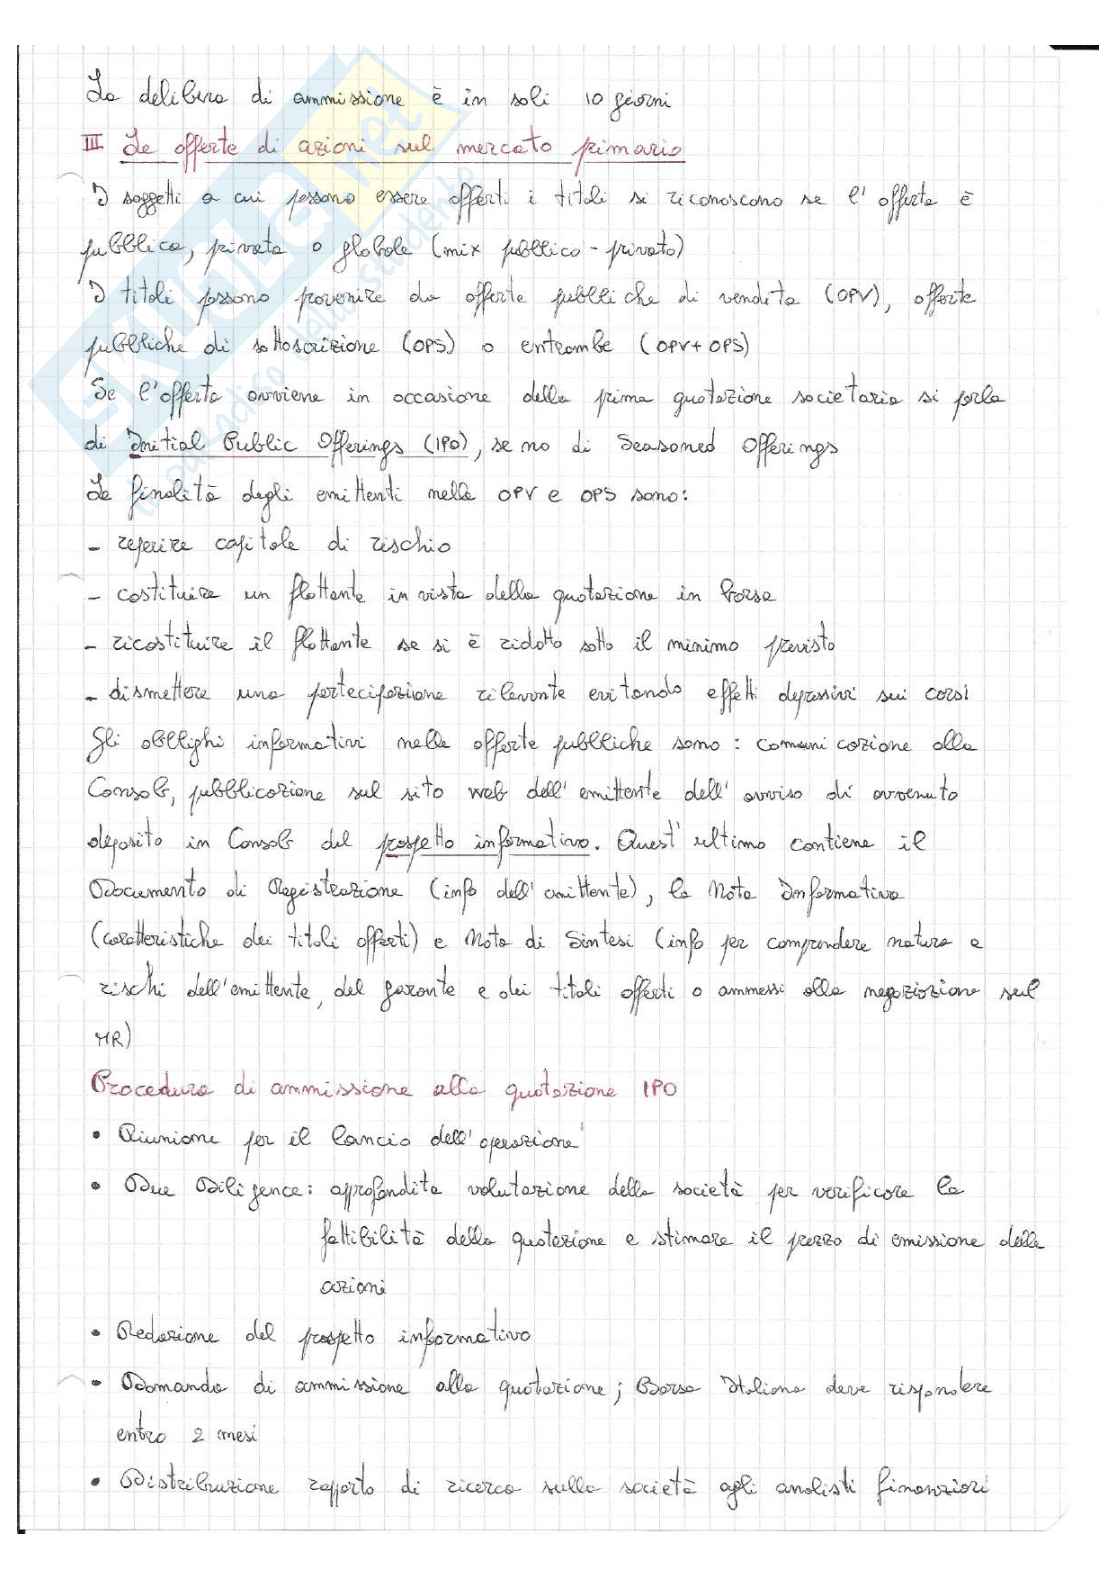 La delibera di ammissione è in soli 10 giorni
III Le offerte di azioni sul mercato primario
I soggetti a cui possono essere offerti i titoli si riconoscono se l'offerta è
pubblica, privata o globale (mix pubblico - privato)
I titoli possono provenire da offerte pubbliche di vendita (OPV), offerte
pubbliche di sottoscrizione (OPS) o entrambe (OPV+OPS)
Se l'offerta avviene in occasione della prima quotazione societaria si parla
di Initial Public Offerings (IPO), se no di Seasoned Offerings
Le finalità degli emittenti nelle OPV e OPS sono:
- reperire capitale di rischio
- costituire un flottante in vista della quotazione in borsa
- ricostituire il flottante se si è ridotto sotto il minimo previsto
- dismettere una partecipazione rilevante evitando effetti depressivi sui corsi
Gli obblighi informativi nelle offerte pubbliche sono: comunicazione alla
Consob, pubblicazione sul sito web dell'emittente dell'avviso di avvenuto
deposito in Consob del prospetto informativo. Quest'ultimo contiene il
Documento di Registrazione (info dell'emittente), la Nota Informativa
(caratteristiche dei titoli offerti) e Nota di Sintesi (info per comprendere natura e
rischi dell'emittente, del garante e dei titoli offerti o ammessi alla negoziazione sul
MR)
Procedura di ammissione alla quotazione IPO
• Riunione per il lancio dell'operazione
• Due Diligence: approfondita valutazione della società per verificare la
fattibilità della quotazione e stimare il prezzo di emissione delle
azioni
• Redazione del prospetto informativo
• Domanda di ammissione alla quotazione; Borsa Italiana deve rispondere
entro 2 mesi
• Distribuzione rapporto di ricerca sulla società agli analisti finanziari